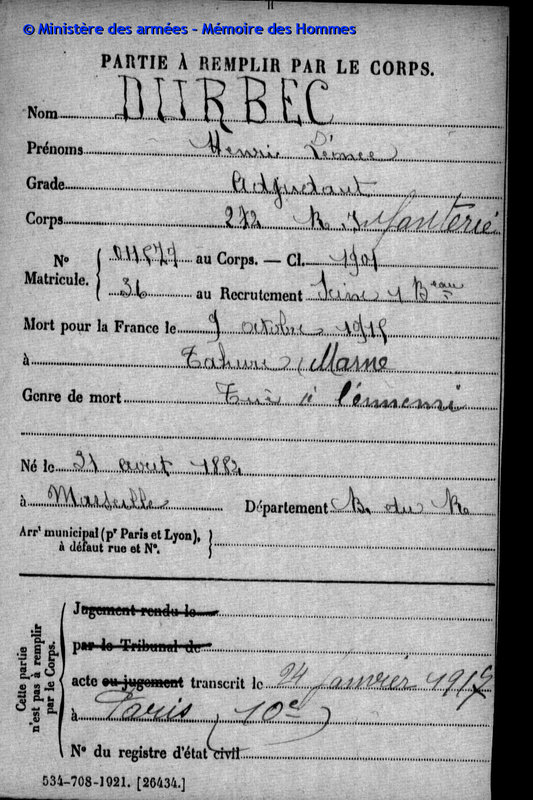 © Ministère des armées - Mémoire des Hommes
PARTIE À REMPLIR PAR LE CORPS.
Nom DURBEC
Prénoms Henri Léonce
Grade Adjudant
Corps 272 R. d'Infanterie
N° Matricule. 011577 au Corps. — Cl. 1901
36 au Recrutement Seine 4 Beau
Mort pour la France le 9 octobre 1915
à Tahure (Marne
Genre de mort Tué à l'ennemi
Né le 21 août 1882
à Marseille Département B. du R.
Arrt municipal (pr Paris et Lyon), à défaut rue et N°.
Cette partie n'est pas à remplir par le Corps.
Jugement rendu le
par le Tribunal de
acte ou jugement transcrit le 24 janvier 1917
à Paris (10e)
N° du registre d'état civil
534-708-1921. [26434.]